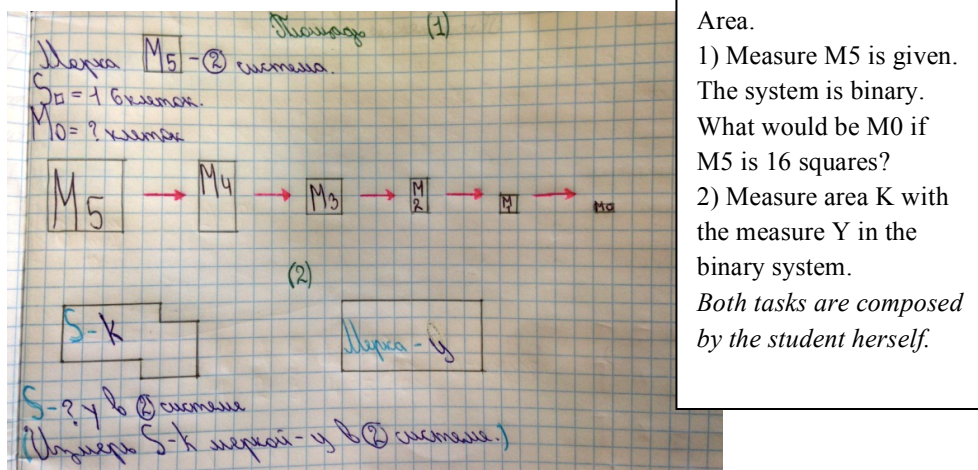 Площадь (1)
Мерка М5 - ② система.
S□ = 1 6 клеток.
М0 = ? клеток
М5 → М4 → М3 → М2 → М1 → М0
(2)
S - К
Мерка - У
S - ? У в ② системе
(Измерь S - К меркой - У в ② системе.)
Area.
1) Measure M5 is given.
The system is binary.
What would be M0 if
M5 is 16 squares?
2) Measure area K with
the measure Y in the
binary system.
Both tasks are composed
by the student herself.